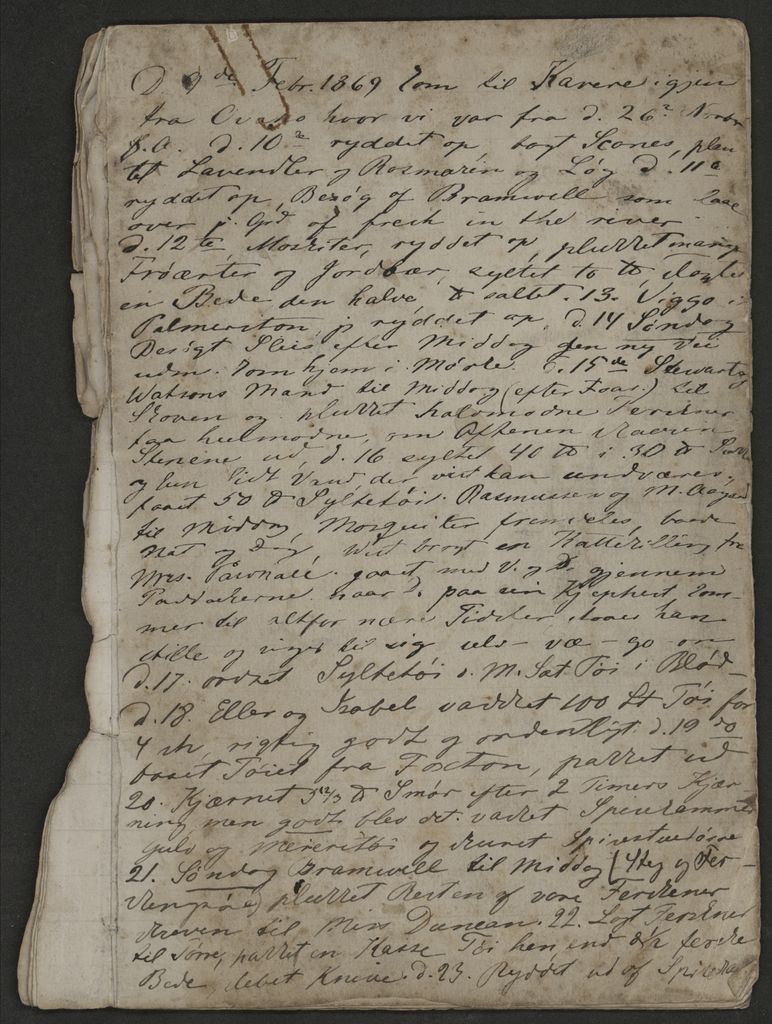 D 9de Febr. 1869 kom til Karere igjen
fra Ovaho hvor vi var fra d. 26de Novbr
f.A. d. 10de ryddet op bagt Scones, plan
tet Lavendler og Rosmarin og Løg d. 11te
ryddet op, Besøg af Bramwell som laae
over p. Grd of fresh in the river.
d. 12te Moskiter, ryddet op, plukket mange
Frøærter og Jordbær, syltet to ℔, slagtet
en Bede den halve, ℔ saltet. 13. Viggo i
Palmerston, jg ryddet op, d. 14 Søndag
Besigt Skis efter Middag gen ny Vei
uden. kom hjem i Mørke. d. 15de Stewarts
Watsons Mand til Middag (efter Faar.) til
Skoven og plukket halvmodne Ferskner
faa hulmodne, om Aftenen skaaren
Stenene ud, d. 16 syltet 40 ℔ i 30 ℔ Sukk
og kun lidt Vand, der vist kan undværes,
faaet 50 ℔ Syltetøi. Rasmussen og M.
til Middag, Mosquiter fremdeles, baade
Nat og Dag, Wist bragt en Kattekilling fra
Mrs. Pownall. gaaet med V. og D. gjennem
Paddockerne naar D. paa sin Kjephest, kom-
mer til altfor nære Tidsler, staaer han
stille og siger til sig uls - væ - go - on
d. 17. ordnet Syltetøi s. M. Sat Tøi i Blød
d. 18. Ellen og Isabel vasket 100 St Tøi for
4 sh, rigtig godt og ordentligt. d. 19 do
baset Tøiet fra Foxton, pakket ud
20. Kjærnet 5 12/3 ℔ Smør efter 2 Timers Kjær-
ning, men godt blev det. vasket Spisekammer
gulv og Meieritøi og skuret Spisestuedøre
21. Søndag Bramwell til Middag (Steg og Fer-
skengrød) plukket Resten af vore Ferskener
skreven til Miss Duncan. 22. Lagt Ferskner
til Tørre, pakket en Kasse Tøi hen, end ferske
Bede, lebet Knive. d. 23. Ryddet ud af